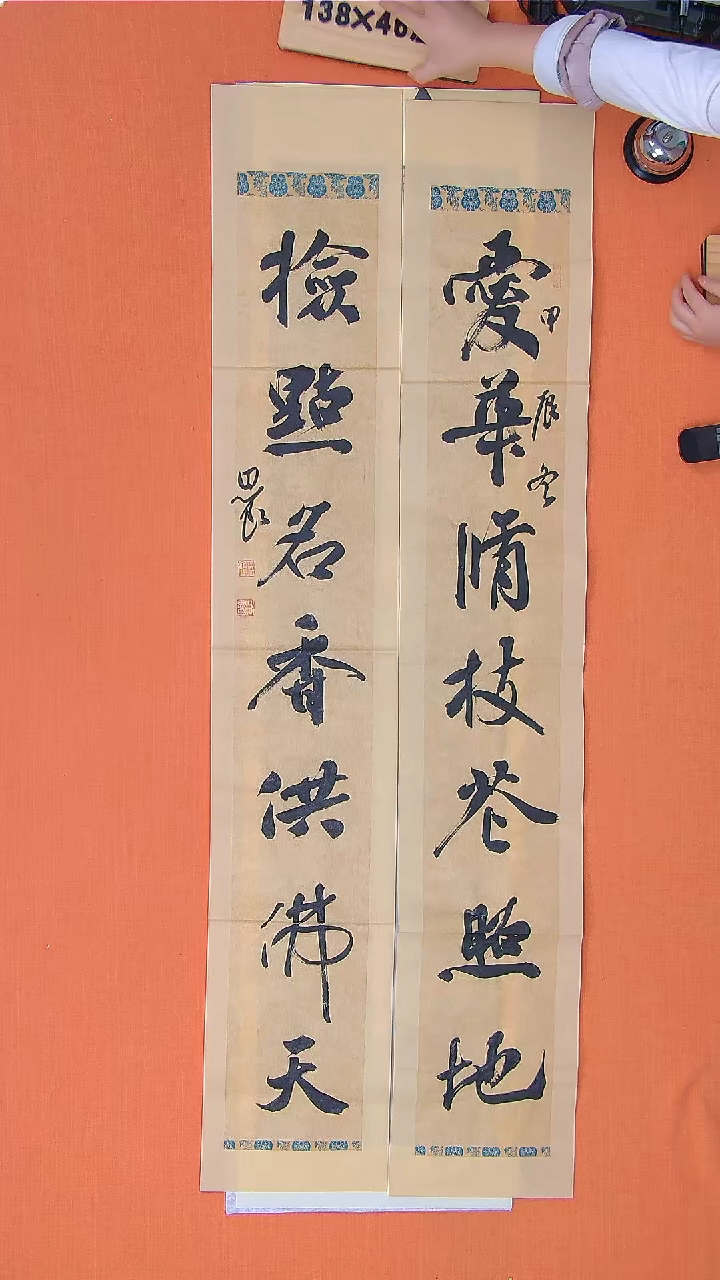 138×46
愛華脩枝花照地
甲辰冬
檢點名香供佛天